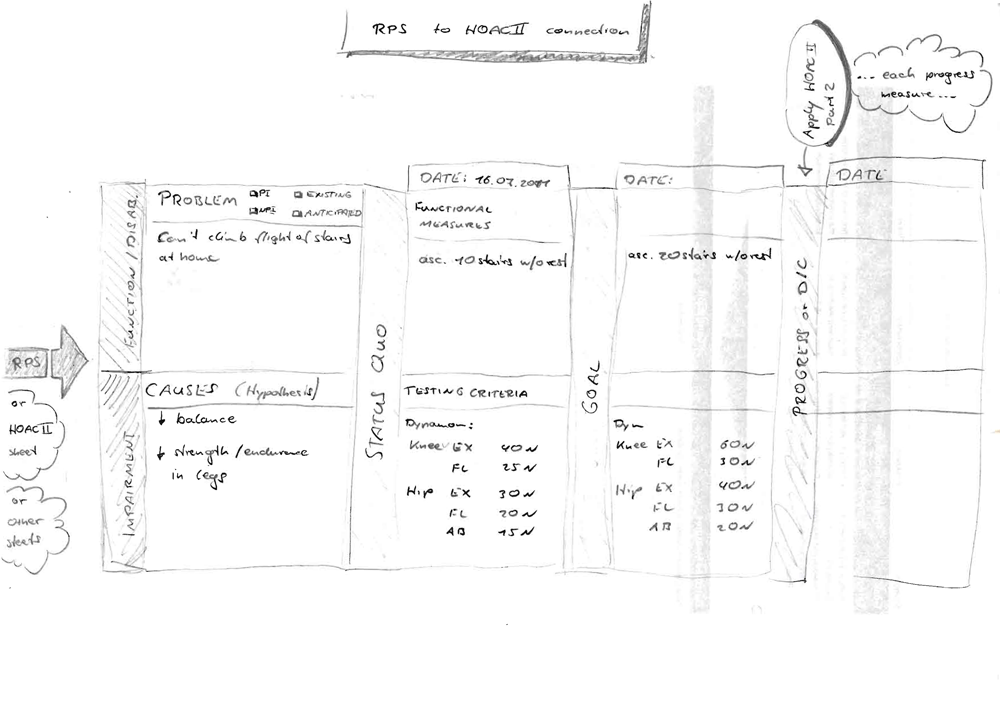 RPS to HOAC II connection
Apply HOAC II
part 2
... each progress
measure ...
RPS
or
HOAC II
sheet
or
other
sheets
FUNCTION / DISAB.
PROBLEM
PI
EXISTING
NPI
ANTICIPATED
Can't climb flight of stairs
at home
IMPAIRMENT
CAUSES (Hypothesis)
↓ balance
↓ strength / endurance
in legs
STATUS QUO
DATE: 16.07.2011
FUNCTIONAL
MEASURES
asc. 10 stairs w/o rest
TESTING CRITERIA
Dynamom:
Knee EX 40N
FL 25N
Hip EX 30N
FL 20N
AB 15N
GOAL
DATE:
asc. 20 stairs w/o rest
Dyn
Knee EX 60N
FL 30N
Hip EX 40N
FL 30N
AB 20N
PROGRESS or D/C
DATE